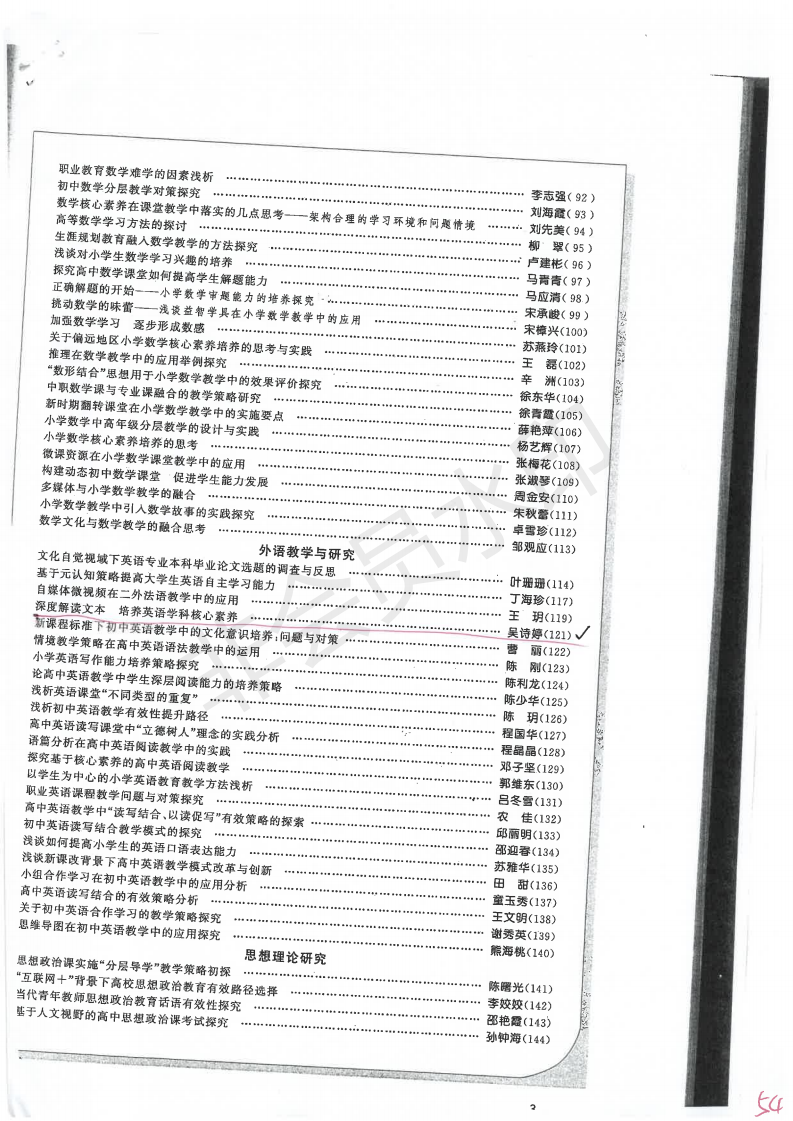 职业教育数学难学的因素浅析 …… 李志强(92)
初中数学分层教学对策探究 …… 刘海霞(93)
数学核心素养在课堂教学中落实的几点思考——架构合理的学习环境和问题情境 …… 刘先美(94)
高等数学学习方法的探讨 …… 柳　翠(95)
生涯规划教育融入数学教学的方法探究 …… 卢建彬(96)
浅谈对小学生数学学习兴趣的培养 …… 马青青(97)
探究高中数学课堂如何提高学生解题能力 …… 马应清(98)
正确解题的开始——小学数学审题能力的培养探究 …… 宋承峻(99)
挑动数学的味蕾——浅谈益智学具在小学数学教学中的应用 …… 宋樟兴(100)
加强数学学习　逐步形成数感 …… 苏燕玲(101)
关于偏远地区小学数学核心素养培养的思考与实践 …… 王　磊(102)
推理在数学教学中的应用举例探究 …… 辛　洲(103)
“数形结合”思想用于小学数学教学中的效果评价探究 …… 徐东华(104)
中职数学课与专业课融合的教学策略研究 …… 徐青霞(105)
新时期翻转课堂在小学数学教学中的实施要点 …… 薛艳萍(106)
小学数学中高年级分层教学的设计与实践 …… 杨艺辉(107)
小学数学核心素养培养的思考 …… 张梅花(108)
微课资源在小学数学课堂教学中的应用 …… 张淑琴(109)
构建动态初中数学课堂　促进学生能力发展 …… 周金安(110)
多媒体与小学数学教学的融合 …… 朱秋蕾(111)
小学数学教学中引入数学故事的实践探究 …… 卓雪珍(112)
数学文化与数学教学的融合思考 …… 邹观应(113)
外语教学与研究
文化自觉视域下英语专业本科毕业论文选题的调查与反思 …… 叶珊珊(114)
基于元认知策略提高大学生英语自主学习能力 …… 丁海珍(117)
自媒体微视频在二外法语教学中的应用 …… 王　玥(119)
深度解读文本　培养英语学科核心素养 …… 吴诗婷(121)
新课程标准下初中英语教学中的文化意识培养:问题与对策 …… 曹　丽(122)
情境教学策略在高中英语语法教学中的运用 …… 陈　刚(123)
小学英语写作能力培养策略探究 …… 陈利龙(124)
论高中英语教学中学生深层阅读能力的培养策略 …… 陈少华(125)
浅析英语课堂“不同类型的重复” …… 陈　玥(126)
浅析初中英语教学有效性提升路径 …… 程国华(127)
高中英语读写课堂中“立德树人”理念的实践分析 …… 程晶晶(128)
语篇分析在高中英语阅读教学中的实践 …… 邓子坚(129)
探究基于核心素养的高中英语阅读教学 …… 郭维东(130)
以学生为中心的小学英语教育教学方法浅析 …… 吕冬雪(131)
职业英语课程教学问题与对策探究 …… 农　佳(132)
高中英语教学中“读写结合、以读促写”有效策略的探索 …… 邱丽明(133)
初中英语读写结合教学模式的探究 …… 邵迎春(134)
浅谈如何提高小学生的英语口语表达能力 …… 苏雅华(135)
浅谈新课改背景下高中英语教学模式改革与创新 …… 田　甜(136)
小组合作学习在初中英语教学中的应用分析 …… 童玉秀(137)
高中英语读写结合的有效策略分析 …… 王文明(138)
关于初中英语合作学习的教学策略探究 …… 谢秀英(139)
思维导图在初中英语教学中的应用探究 …… 熊海桃(140)
思想理论研究
思想政治课实施“分层导学”教学策略初探 …… 陈曙光(141)
“互联网+”背景下高校思想政治教育有效路径选择 …… 李姣姣(142)
当代青年教师思想政治教育话语有效性探究 …… 邵艳霞(143)
基于人文视野的高中思想政治课考试探究 …… 孙钟海(144)
3
54
非会员水印